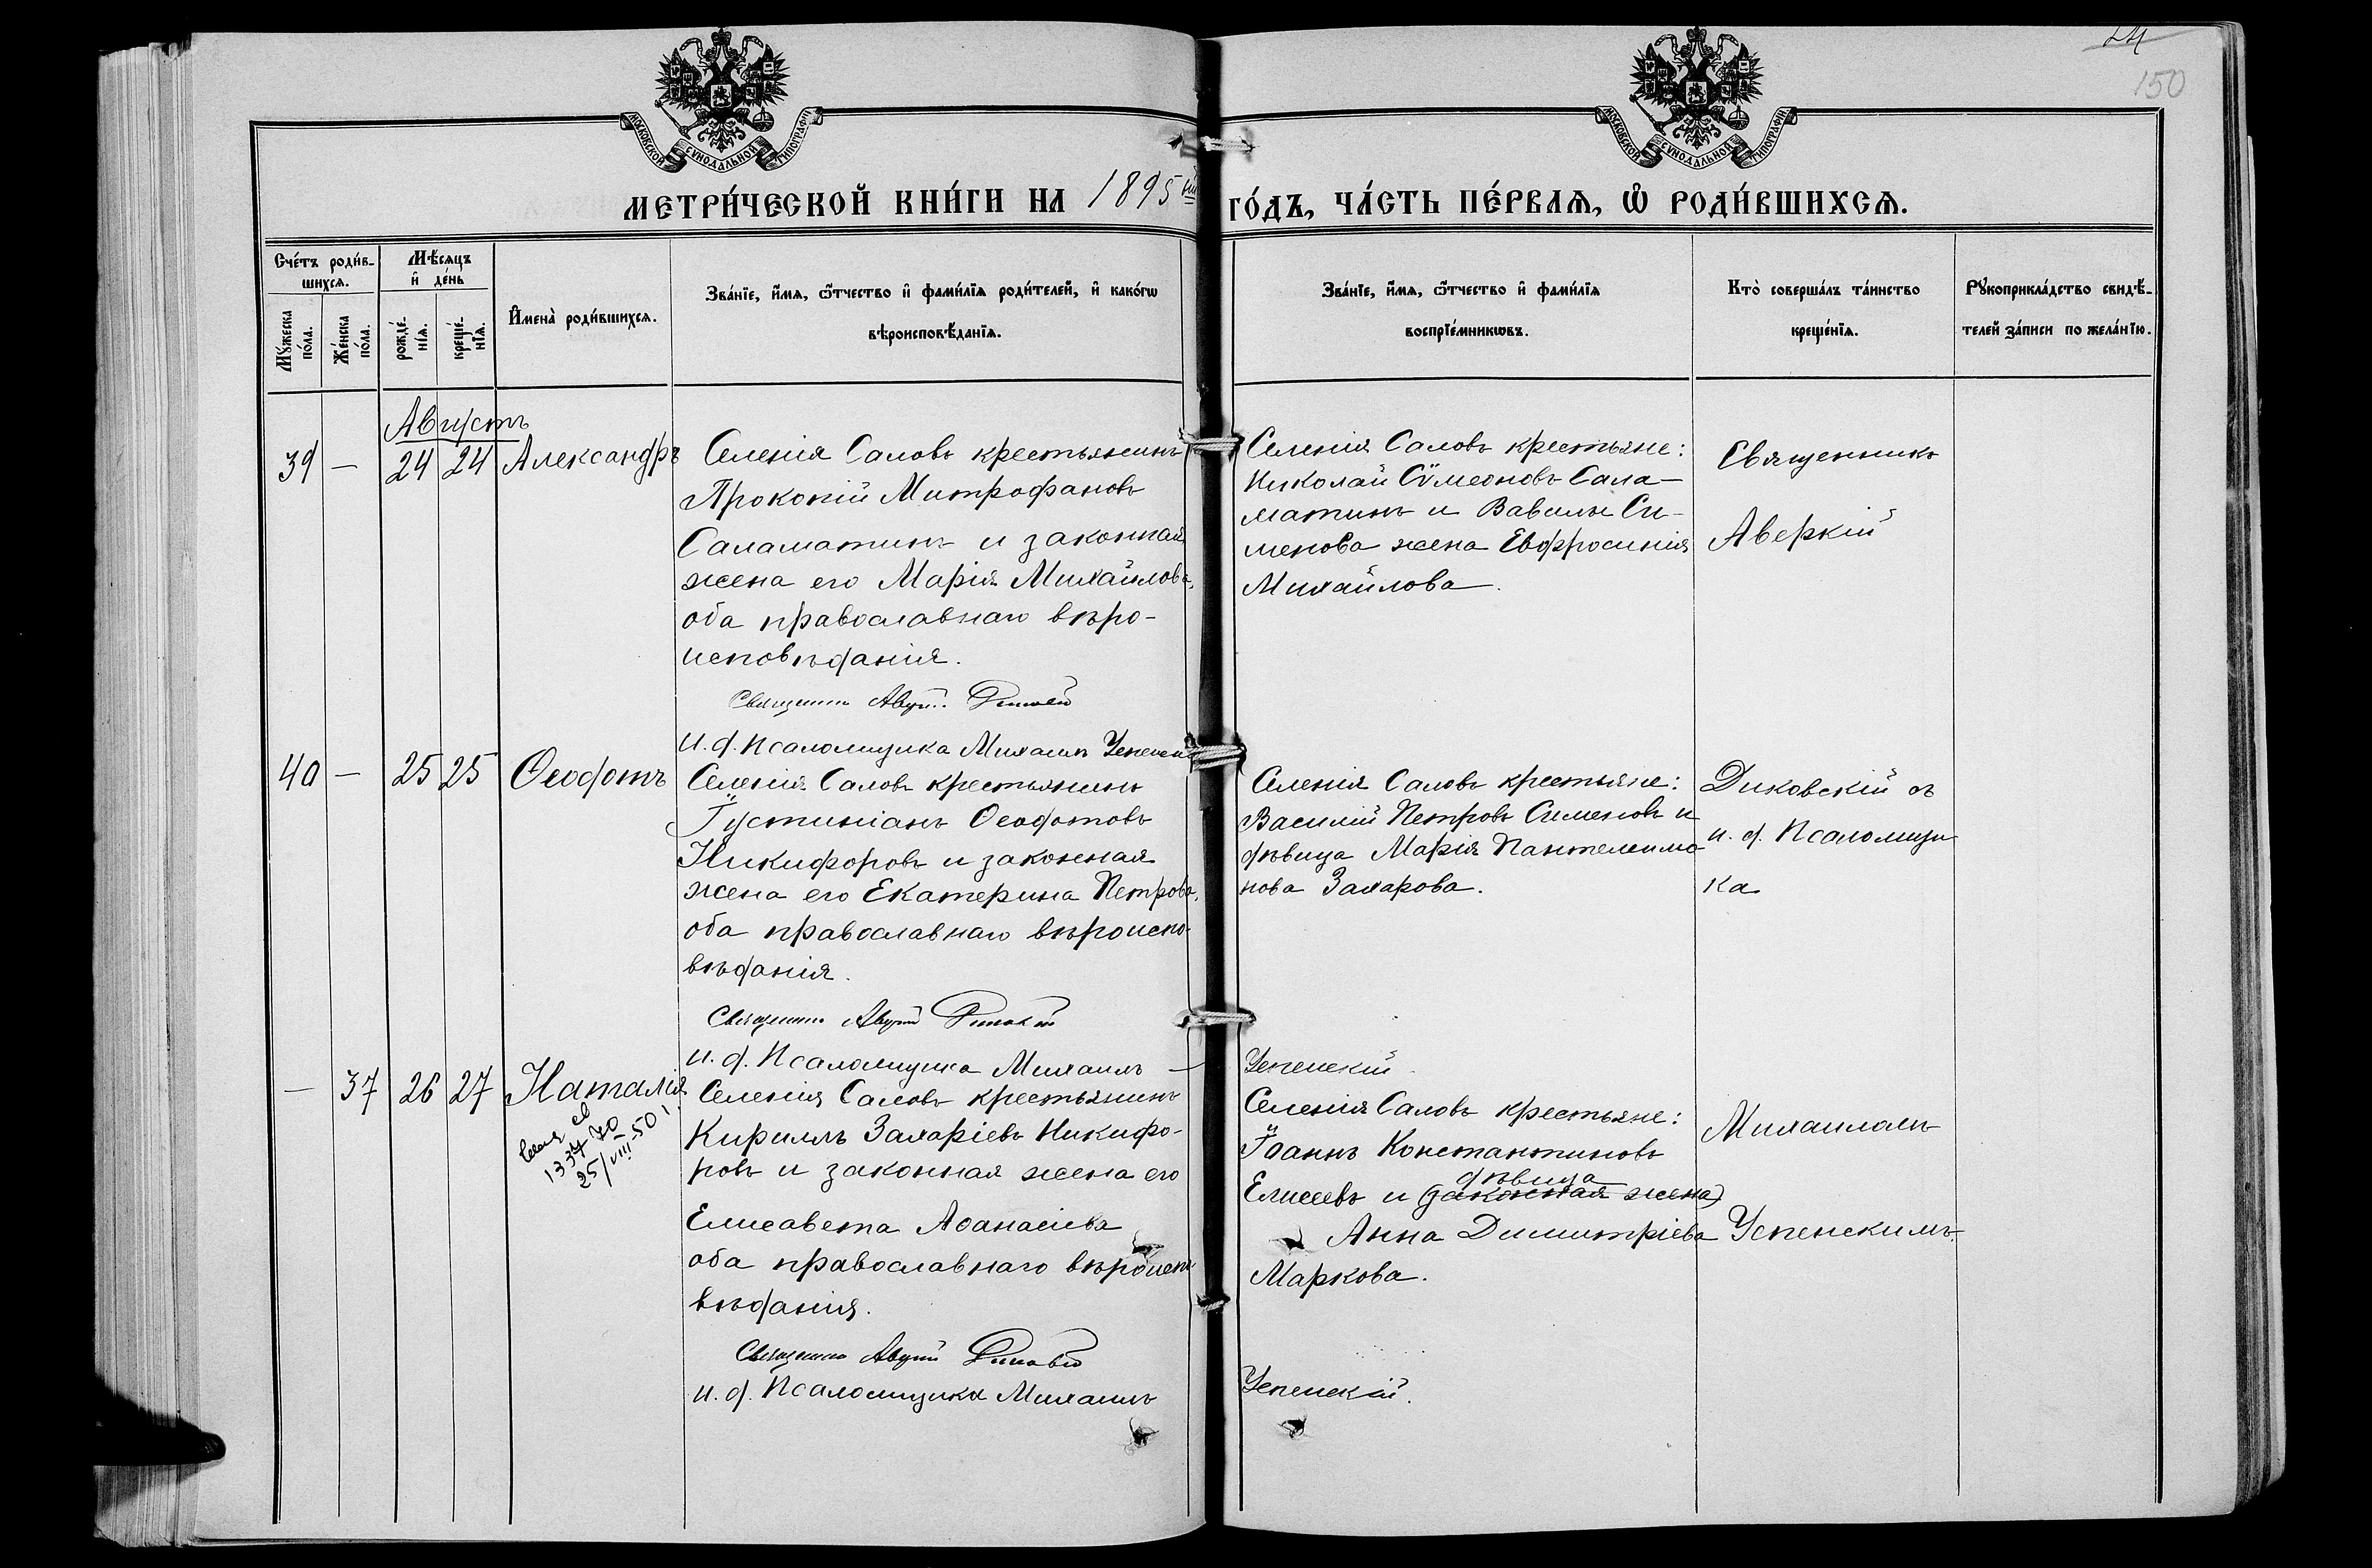 24
150
МОСКОВСКОЙ СУНОДАЛЬНОЙ ТИПОГРАФІИ
МОСКОВСКОЙ СУНОДАЛЬНОЙ ТИПОГРАФІИ
МЕТРИ́ЧЕСКОЙ КНИ́ГИ НА 1895 ый ГО́ДЪ, ЧА́СТЬ ПЕ́РВАѦ, Ѽ РОДИ́ВШИХСѦ.
Сче́тъ роди́в-
шихсѧ.
Мꙋ́жеска
по́ла.
Же́нска
по́ла.
Мѣ́сѧцъ
и҆ де́нь
рожде́-
нїѧ.
креще́-
нїѧ.
И҆мена̀ роди́вшихсѧ.
Зва́нїе, и҆́мѧ, ѻ҆́тчество и҆ фами́лїѧ роди́телей, и҆ како́гѡ
вѣроисповѣ́данїѧ.
Зва́нїе, и҆́мѧ, ѻ҆́тчество и҆ фами́лїѧ
воспрїе́мникѡвъ.
Кто̀ соверша́лъ та́инство
креще́нїѧ.
Рꙋкоприкла́дство свидѣ́-
телей за́писи по жела́нїю.
Августъ
39 — 24 24 Александръ
Селенія Саловъ крестьянинъ
Прокопій Митрофановъ
Саламатинъ и законная
жена его Марія Михайлова,
оба православнаго вѣро-
исповѣданія.
Священникъ
и. д. Псаломщика Михаилъ Успенскій
Селенія Саловъ крестьяне:
Николай Сѵмеоновъ Сала-
матинъ и Вавилы Си-
менова жена Евфросинія
Михайлова.
Священникъ
Аверкій
40 — 25 25 Ѳеодотъ
Селенія Саловъ крестьянинъ
Іустиніанъ Ѳеодотовъ
Никифоровъ и законная
жена его Екатерина Петрова,
оба православнаго вѣроиспо-
вѣданія.
Священникъ
и. д. Псаломщика Михаилъ — Успенскій
Селенія Саловъ крестьяне:
Василій Петровъ Сименовъ и
дѣвица Марія Пантелеимо
нова Захарова.
Диковскій съ
и. д. Псаломщи
ка
— 37 26 27 Наталія
25/VIII-50
Селенія Саловъ крестьянинъ
Кириллъ Захаріевъ Никифо-
ровъ и законная жена его
Елисавета Аѳанасіева
оба православнаго вѣроиспо
вѣданія.
Священникъ
и. д. Псаломщика Михаилъ Успенскій.
Селенія Саловъ крестьяне:
Іоаннъ Константиновъ
дѣвица
Елисеевъ и (законная жена)
Анна Димитріева
Маркова.
Михаиломъ
Успенскимъ.